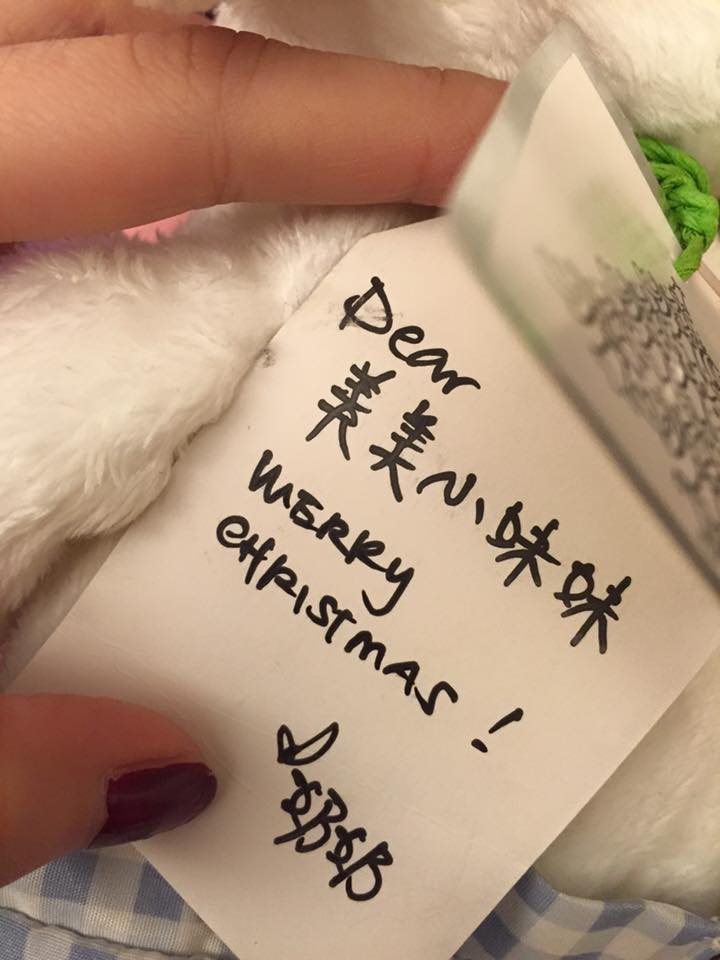 Dear
美美小妹妹
MERRY
CHRISTMAS!